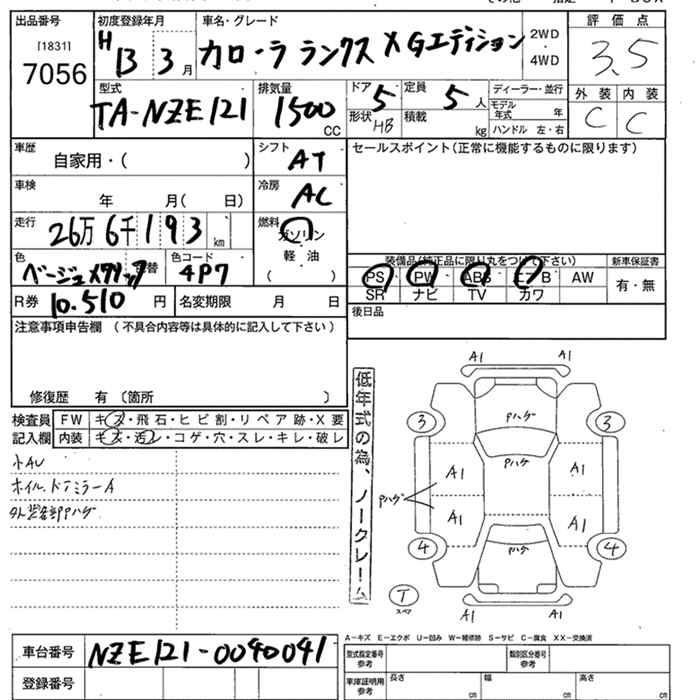 出品番号
[1831]
7056
初度登録年月
H 13 3 月
車名・グレード
カローラ ランクス X Gエディション
2WD
・
4WD
評価点
3.5
外装 内装
C C
型式
TA-NZE121
排気量
1500 CC
ドア 5
形状 HB
定員 5 人
積載 kg
ディーラー・並行
モデル年式 年
ハンドル 左・右
車歴
自家用・( )
シフト
AT
セールスポイント(正常に機能するものに限ります)
車検
年 月( 日)
冷房
AC
走行
26万 6千 193 km
燃料
ガソリン
軽油
( )
色
ベージュメタリック
色替
色コード
4P7
装備品(純正品に限り丸をつけて下さい)
新車保証書
PS PW ABS エアB AW
SR ナビ TV カワ
有・無
R券 10.510 円
名変期限 月 日
後日品
注意事項申告欄 (不具合内容等は具体的に記入して下さい)
修復歴 有 〔箇所 〕
検査員
記入欄
FW キズ・飛石・ヒビ割・リペア跡・X要
内装 キズ・汚レ・コゲ・穴・スレ・キレ・破レ
小AU
ホイル、ドアミラーA
外装各部Pハゲ
低年式の為、ノークレーム
A1 A1
Pハゲ
3 3
Pハゲ
A1 A1
Pハゲ
A1 A1
4 4
Pハゲ
T
スペア
A1 A1
A-キズ E-エクボ U-凹み W-補修跡 S-サビ C-腐食 XX-交換済
車台番号 NZE121-0040041
登録番号
型式指定番号
参考
類別区分番号
参考
車庫証明用
参考
長さ cm
幅 cm
高さ cm